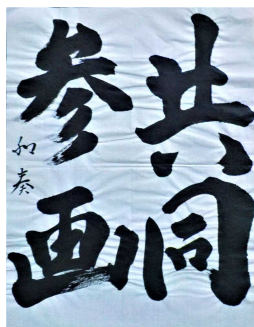 共同
参画
和奏